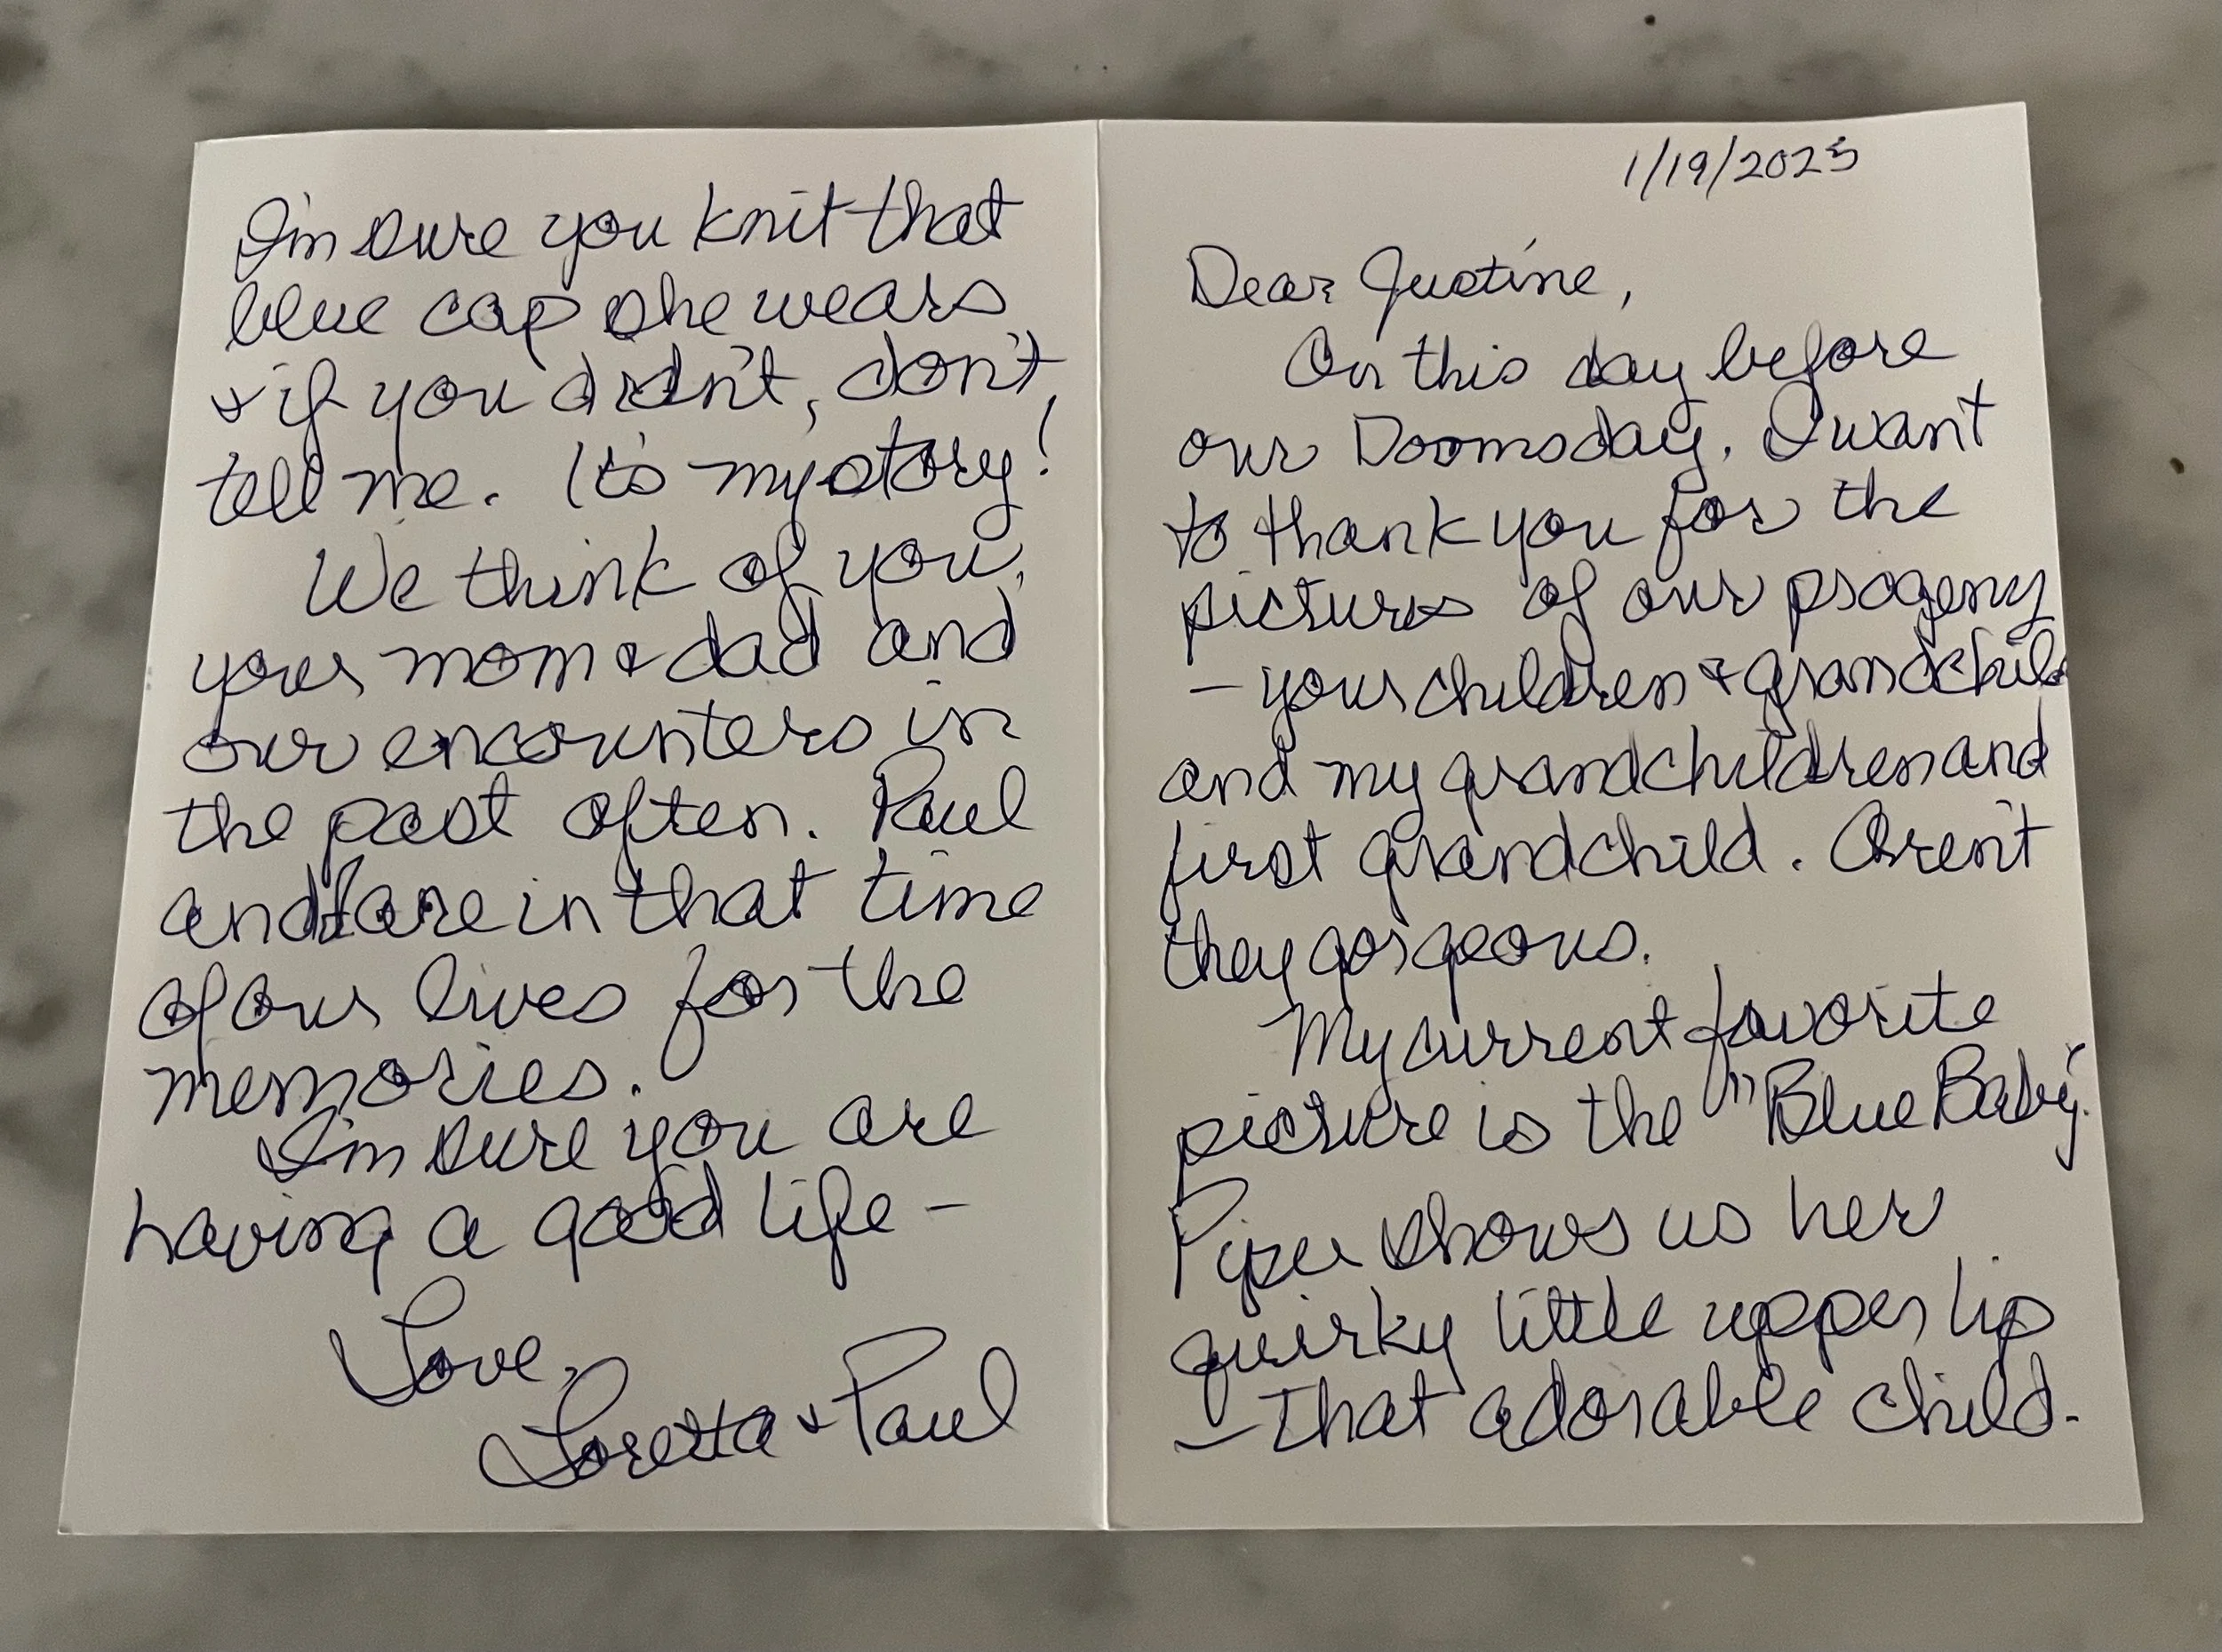 1/19/2025
Dear Justine,
On this day before
our Doomsday. I want
to thank you for the
pictures of our progeny
— your children & grandchild
and my grandchildren and
first grandchild. Aren't
they gorgeous.
My current favorite
picture is the "Blue Baby".
Piper shows us her
quirky little upper lip
— that adorable child.
I'm sure you knit that
blue cap she wears
& if you didn't, don't
tell me. It's my story!
We think of you,
your mom & dad and
our encounters in
the past often. Paul
and I are in that time
of our lives for the
memories.
I'm sure you are
having a good life —
Love,
Loretta & Paul